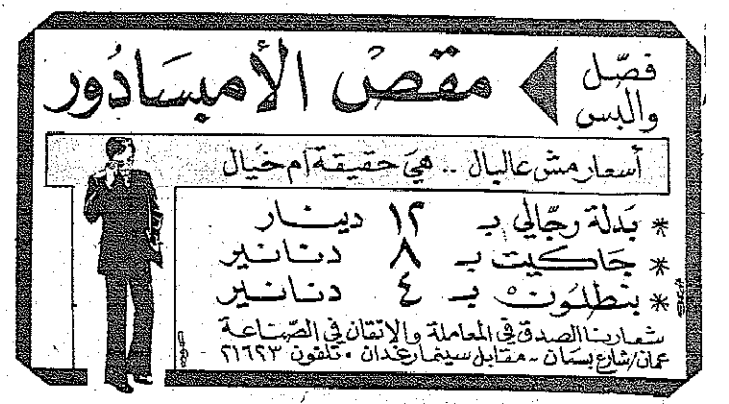 فصّل والبس
مقصّ الأمبسادُور
أسعار مش عالبال .. هيَ حقيقة أم خيال
* بَدلة رجّالي بـ ١٢ دينار
* جَاكيت بـ ٨ دنانير
* بنطلون بـ ٤ دنانير
شعارنا الصدق في المعاملة والاتقان في الصّناعة
عمان/شارع بسمان - مقابل سينما رغدان • تلفون ٢١٦٢٣